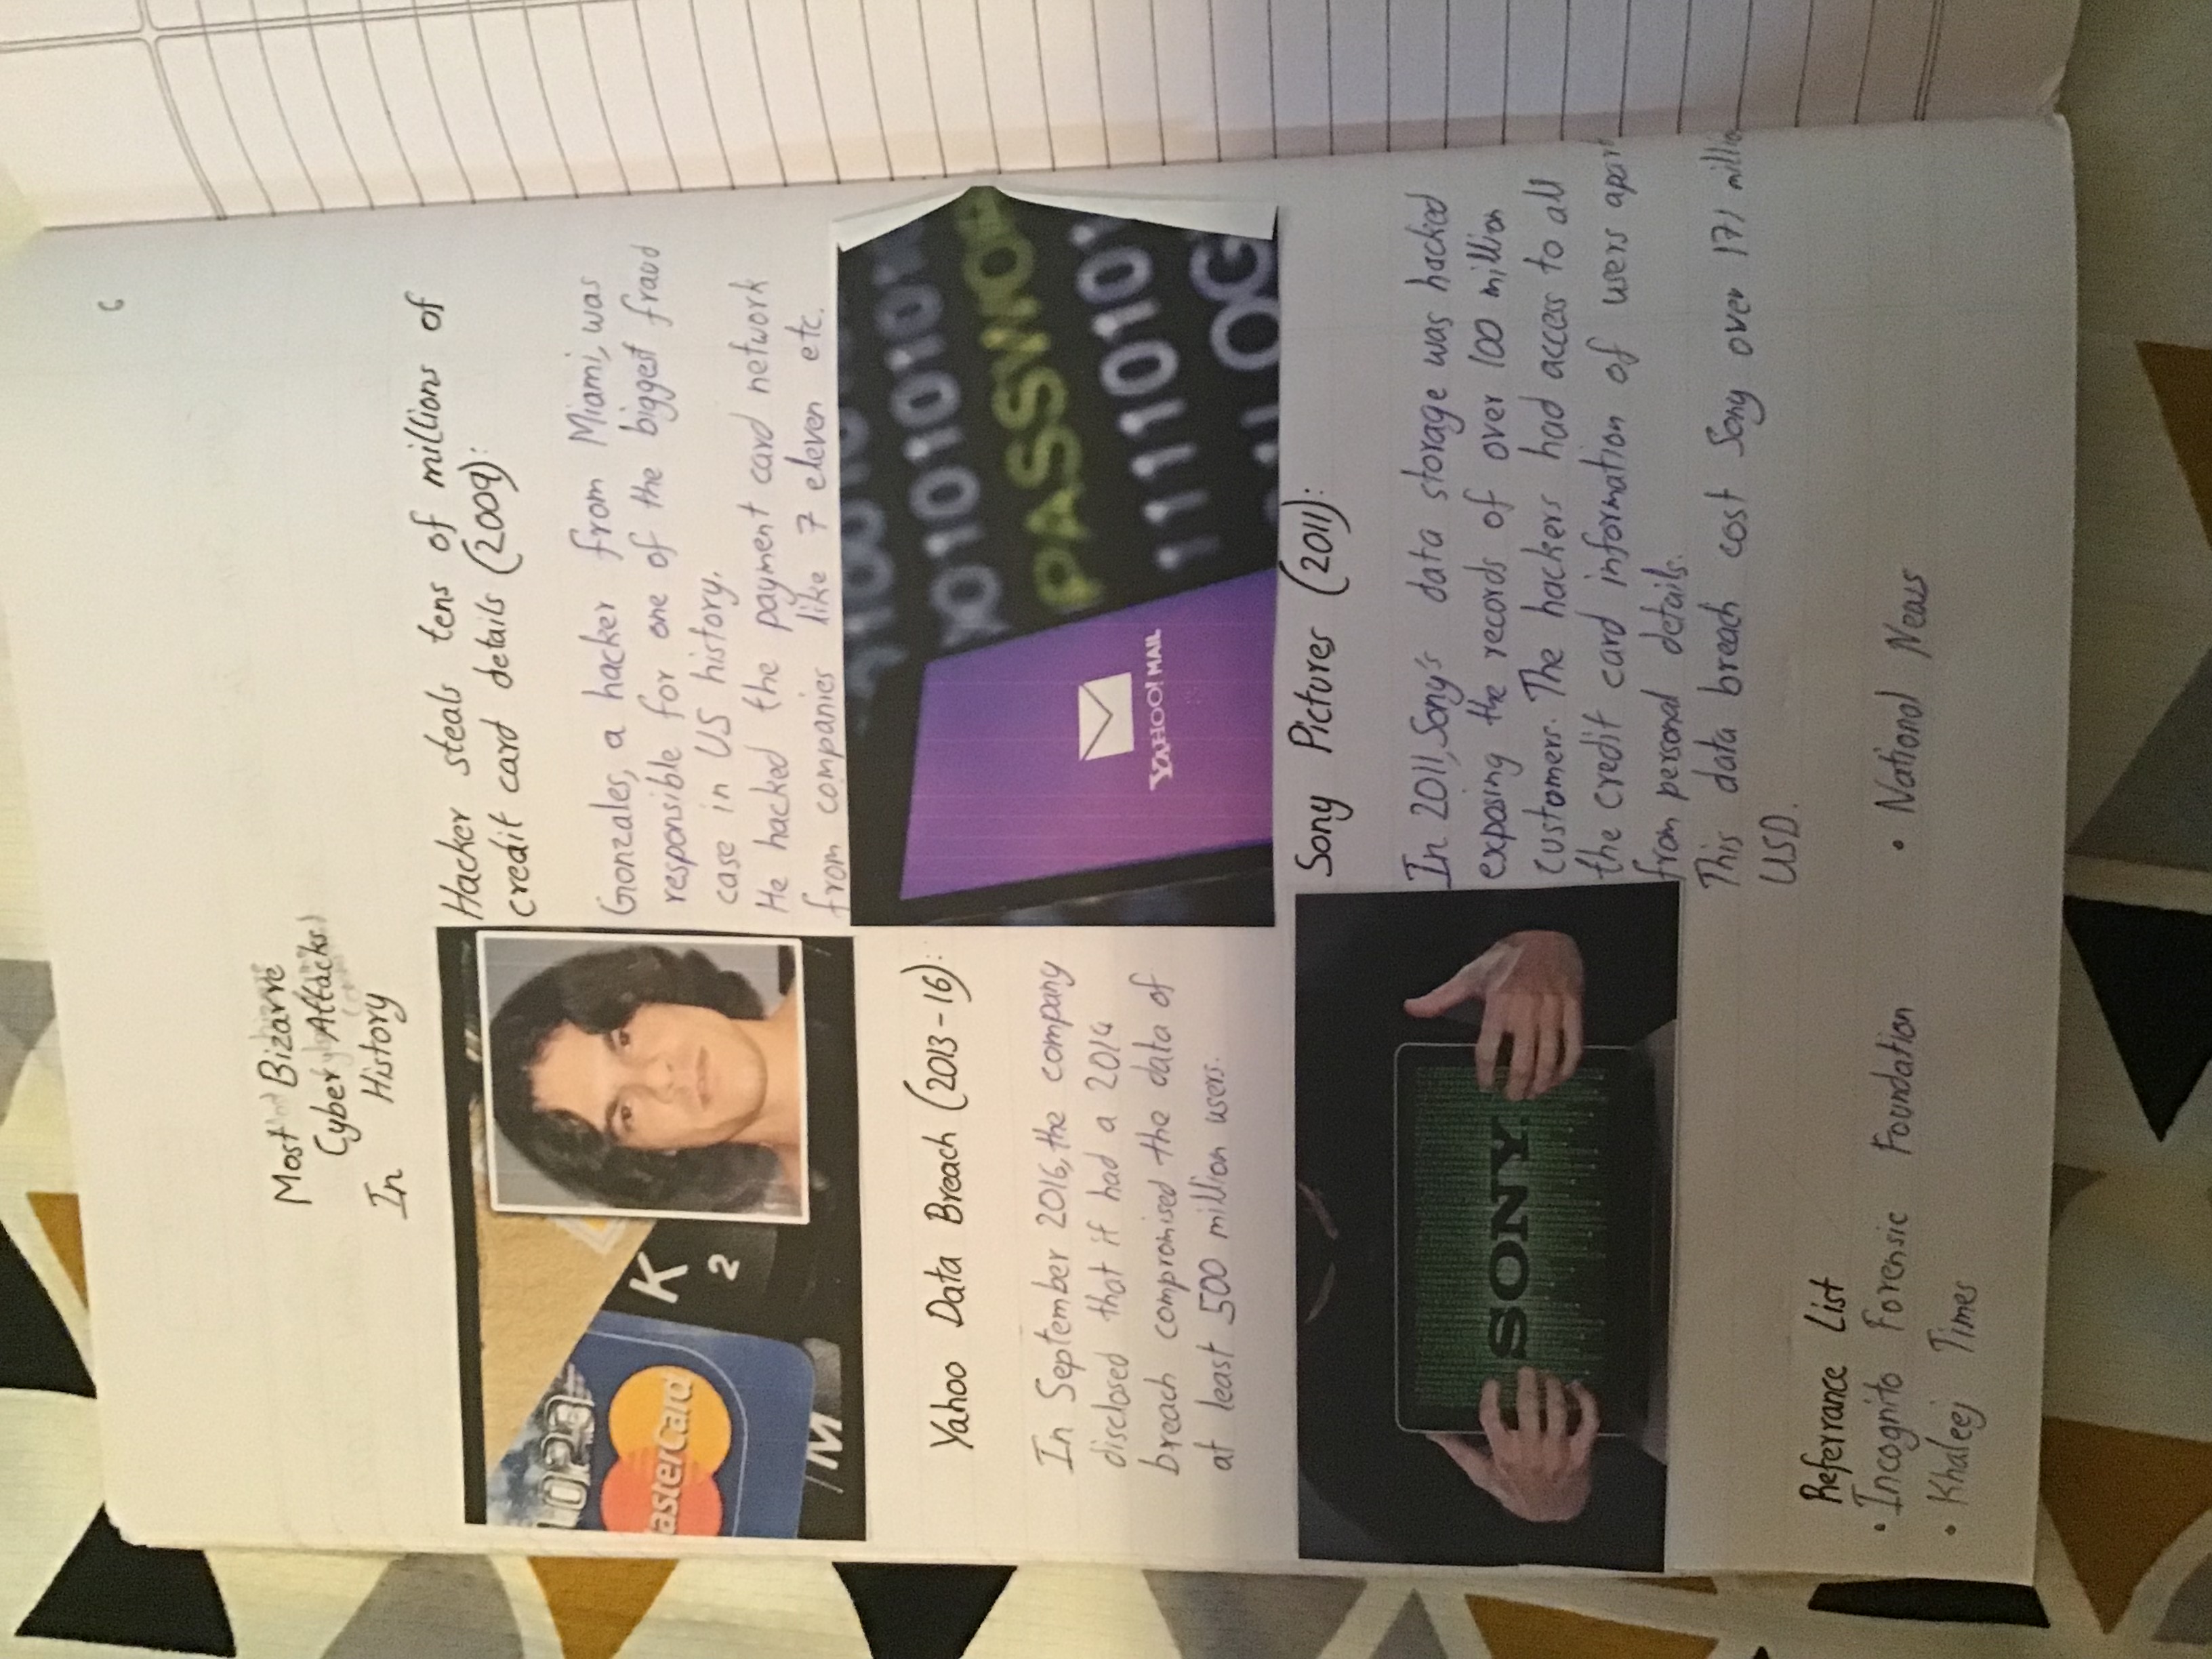 6
Most Bizarre
Cyber Attacks
In History
Hacker steals tens of millions of
credit card details (2009):
1023
asterCard
K
2
M
Gonzales, a hacker from Miami, was
responsible for one of the biggest fraud
case in US history.
He hacked the payment card network
from companies like 7 eleven etc.
Yahoo Data Breach (2013-16):
In September 2016, the company
disclosed that it had a 2014
breach compromised the data of
at least 500 million users.
10010
0101010
PASSWOR
YAHOO! MAIL
1111010
LOG
SONY
Sony Pictures (2011):
In 2011, Sony's data storage was hacked
exposing the records of over 100 million
customers. The hackers had access to all
the credit card information of users apart
from personal details.
This data breach cost Sony over 171 million
USD.
Referrance List
• Incognito Forensic Foundation
• National News
• Khaleej Times